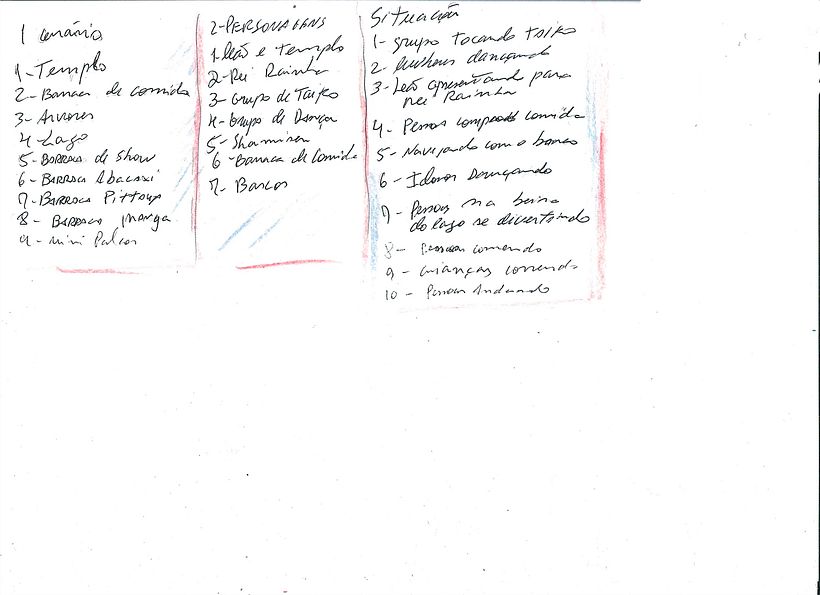 1 cenário
1-Templo
2-Banca de comida
3-Arvores
4-Lago
5-Barraca de Show
6-Barraca Abacaxi
7-Barraca Pittaya
8-Barraca manga
9-mini Palco
2-PERSONAGENS
1-leão e templo
2-Rei Rainha
3-Grupo de Taiko
4-Grupo de Dança
5-Shamisen
6-Barraca de Comida
7-Barcos
Situação
1-grupo tocando taiko
2-mulheres dançando
3-Leão apresentando para
rei Rainha
4-Pessoas comprando comida
5-Navegando com o barco
6-Idosos Dançando
7-Pessoas na beira
do lago se divertindo
8-Pessoas comendo
9-crianças correndo
10-Pessoas Andando